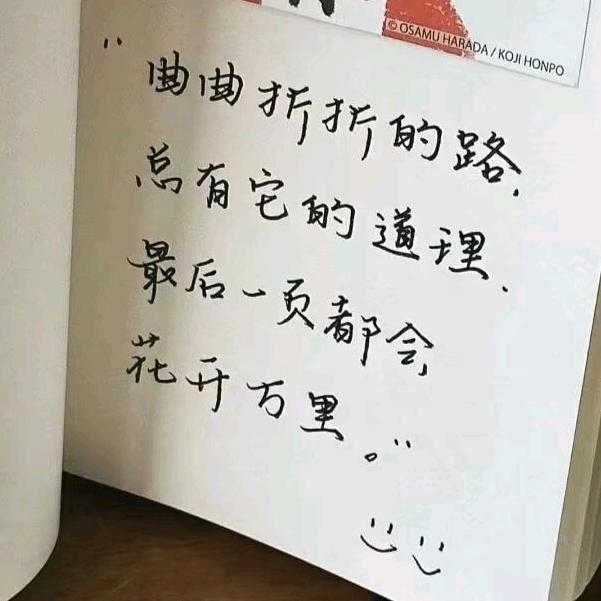 © OSAMU HARADA / KOJI HONPO
“曲曲折折的路,
总有它的道理.
最后一页都会
花开万里。”